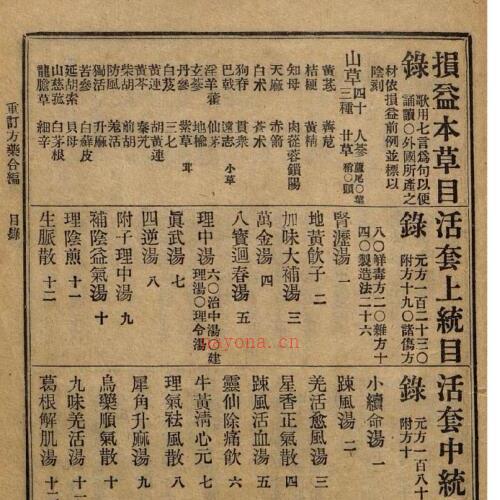 損益本草目錄 歌用七言爲句以便誦讀○外國所產之材依損益前例並標以陰刻
山草 四十三種 人蔘 蘆尾○葉 甘草 梢○頭
黃芪 薺苨
桔梗 黃精
知母 肉蓯蓉 鎖陽
天麻 赤箭
白朮 蒼朮
狗脊 貫衆
巴戟 遠志 小草
淫羊藿 仙茅
玄蔘 地楡
丹蔘 紫草 茸
白芨 三七
黃連 胡黃連
黃芩 秦艽
柴胡 前胡
防風 羌活
獨活 升麻
苦蔘 白蘚皮
延胡索 貝母
山慈菰 白茅根
龍膽草 細辛
活套上統目錄 元方一百二十三○附方十九○諸傷方八○解毒方二○雜方十四○製造法二十六
腎瀝湯 一
地黃飮子 二
加味大補湯 三
萬金湯 四
八寶迴春湯 五
理中湯 六○治中湯○建理湯○理令湯
眞武湯 七
四逆湯 八
附子理中湯 九
補陰益氣湯 十
理陰煎 十一
生脈散 十二
活套中統目錄 元方一百八十 附方十
小續命湯 一
踈風湯 二
羌活愈風湯 三
星香正氣散 四
踈風活血湯 五
靈仙除痛飮 六
牛黃淸心元 七
理氣祛風散 八
犀角升麻湯 九
烏藥順氣散 十
九味羌活湯 十一
葛根解肌湯
重訂方藥合編 目錄
nayona.cn